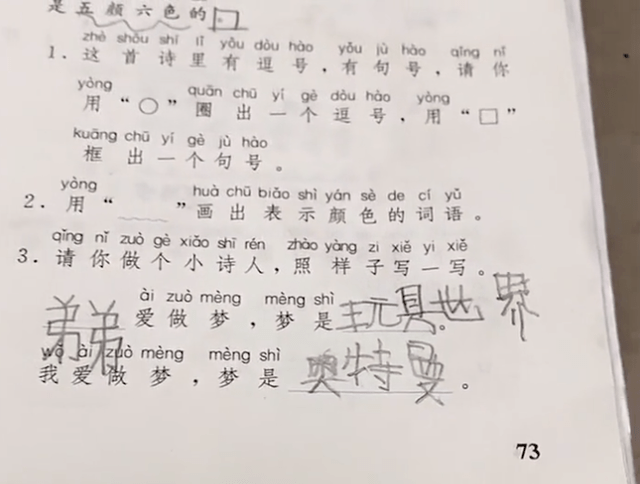 是五颜六色的□
zhè shǒu shī lǐ yǒu dòu hào yǒu jù hào qǐng nǐ
1. 这首诗里有逗号，有句号，请你
yòng quān chū yí gè dòu hào yòng
用“○”圈出一个逗号，用“□”
kuāng chū yí gè jù hào
框出一个句号。
yòng huà chū biǎo shì yán sè de cí yǔ
2. 用“﹏”画出表示颜色的词语。
qǐng nǐ zuò gè xiǎo shī rén zhào yàng zi xiě yi xiě
3. 请你做个小诗人，照样子写一写。
ài zuò mèng mèng shì
弟弟爱做梦，梦是玩具世界。
wǒ ài zuò mèng mèng shì
我爱做梦，梦是奥特曼。
73